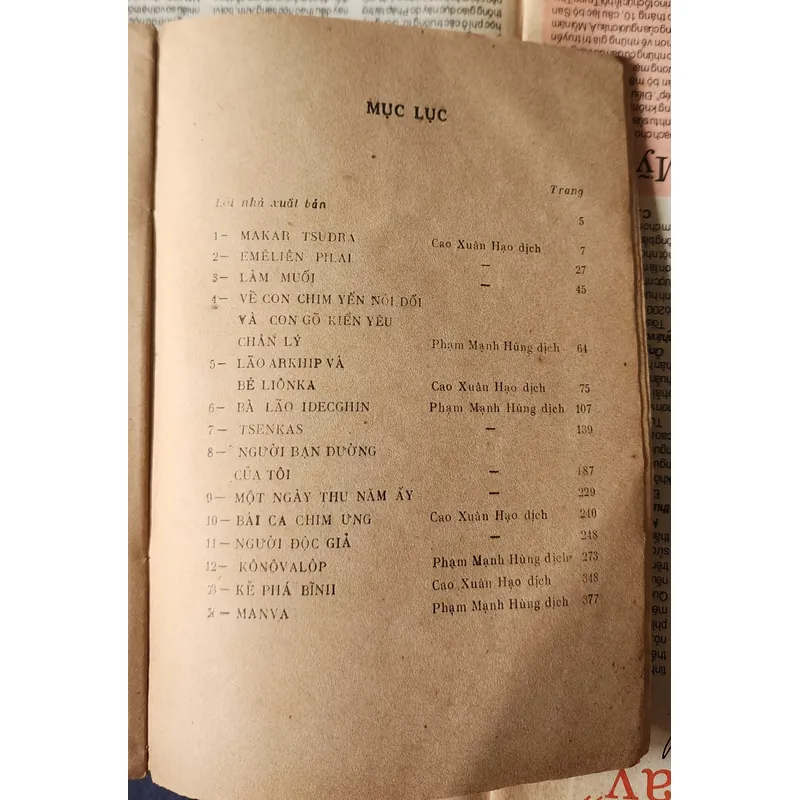 MỤC LỤC
Trang
Lời nhà xuất bản 5
1— MAKAR TSUDRA Cao Xuân Hạo dịch 7
2— EMÊLIÊN PILAI — 27
3— LÀM MUỐI — 45
4— VỀ CON CHIM YẾN NÓI DỐI
VÀ CON GÕ KIẾN YÊU
CHÂN LÝ Phạm Mạnh Hùng dịch 64
5— LÃO ARKHIP VÀ
BÉ LIÔNKA Cao Xuân Hạo dịch 75
6— BÀ LÃO IDECGHIN Phạm Mạnh Hùng dịch 107
7— TSENKAS — 139
8— NGƯỜI BẠN ĐƯỜNG
CỦA TÔI — 187
9— MỘT NGÀY THU NĂM ẤY — 229
10— BÀI CA CHIM ƯNG Cao Xuân Hạo dịch 240
11— NGƯỜI ĐỘC GIẢ — 248
12— KÔNÔVALỐP Phạm Mạnh Hùng dịch 273
13— KẺ PHÁ BĨNH Cao Xuân Hạo dịch 348
14— MANVA Phạm Mạnh Hùng dịch 377